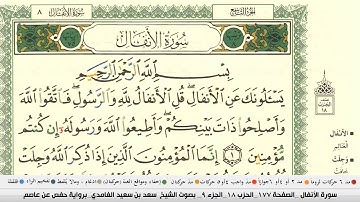 سُورَةُ الأَنفَال ٨
الجُزْءُ التَّاسِعُ
سُورَةُ الأَنفَالِ
بِسْمِ ٱللَّهِ ٱلرَّحْمَٰنِ ٱلرَّحِيمِ
يَسْـَٔلُونَكَ عَنِ ٱلْأَنفَالِ ۖ قُلِ ٱلْأَنفَالُ لِلَّهِ وَٱلرَّسُولِ ۖ فَٱتَّقُوا۟ ٱللَّهَ
وَأَصْلِحُوا۟ ذَاتَ بَيْنِكُمْ ۖ وَأَطِيعُوا۟ ٱللَّهَ وَرَسُولَهُۥٓ إِن كُنتُم
مُّؤْمِنِينَ ١ إِنَّمَا ٱلْمُؤْمِنُونَ ٱلَّذِينَ إِذَا ذُكِرَ ٱللَّهُ وَجِلَتْ
سورة الأنفال . الصفحة ١٧٧ . الحزب ١٨ . الجزء ٩ . بصوت الشيخ سعد بن سعيد الغامدي . برواية حفص عن عاصم